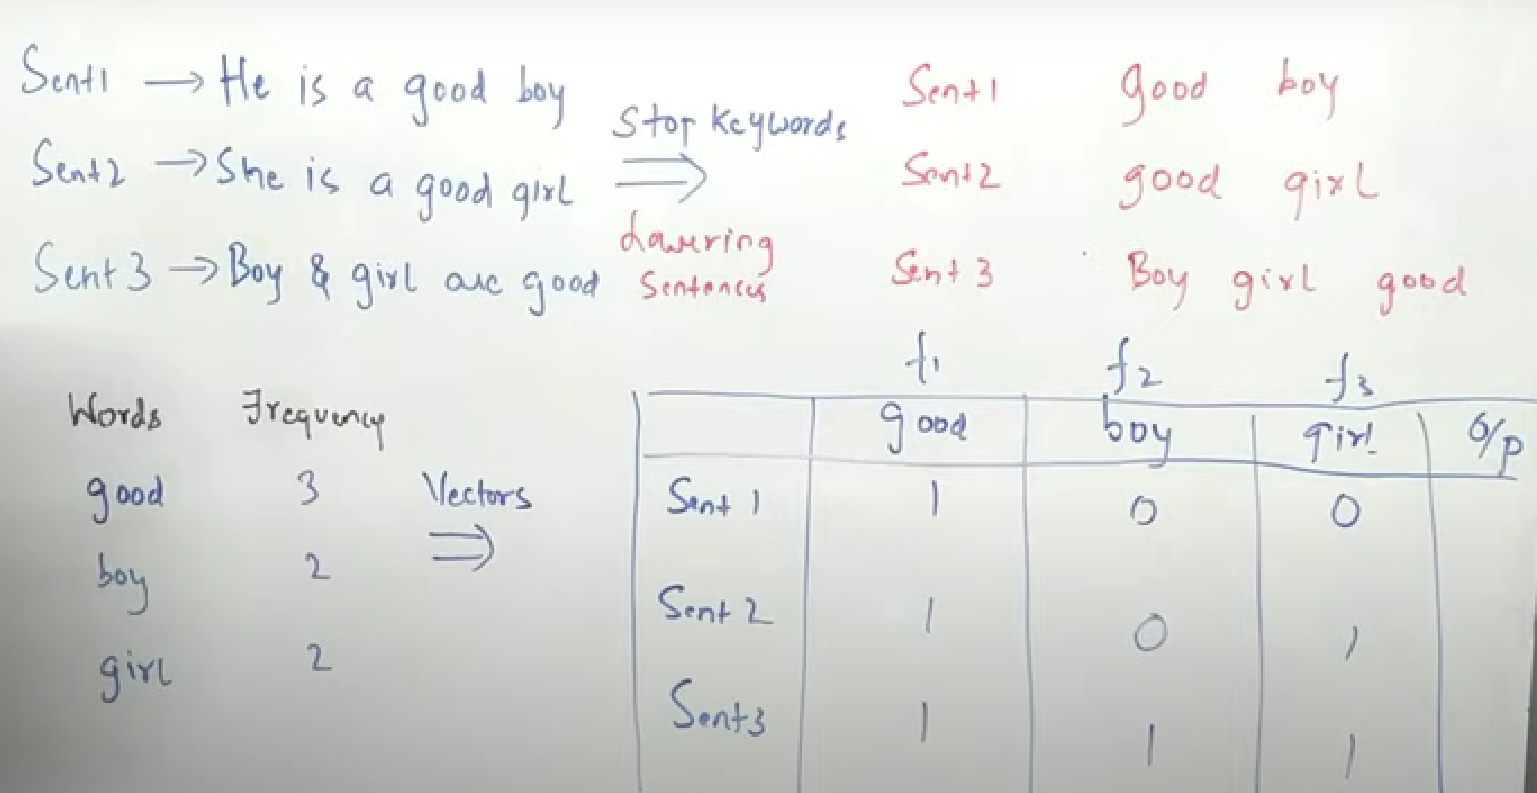 Sent1 → He is a good boy
Sent2 → She is a good girl
Sent 3 → Boy & girl are good
Stop Keywords
⇒
Lowering
Sentences
Sent1 Good boy
Sent2 good girl
Sent 3 Boy girl good
Words Frequency
good 3
boy 2
girl 2
Vectors
⇒
f1 f2 f3
good boy girl O/p
Sent 1 1 0 0
Sent 2 1 0 1
Sent3 1 1 1